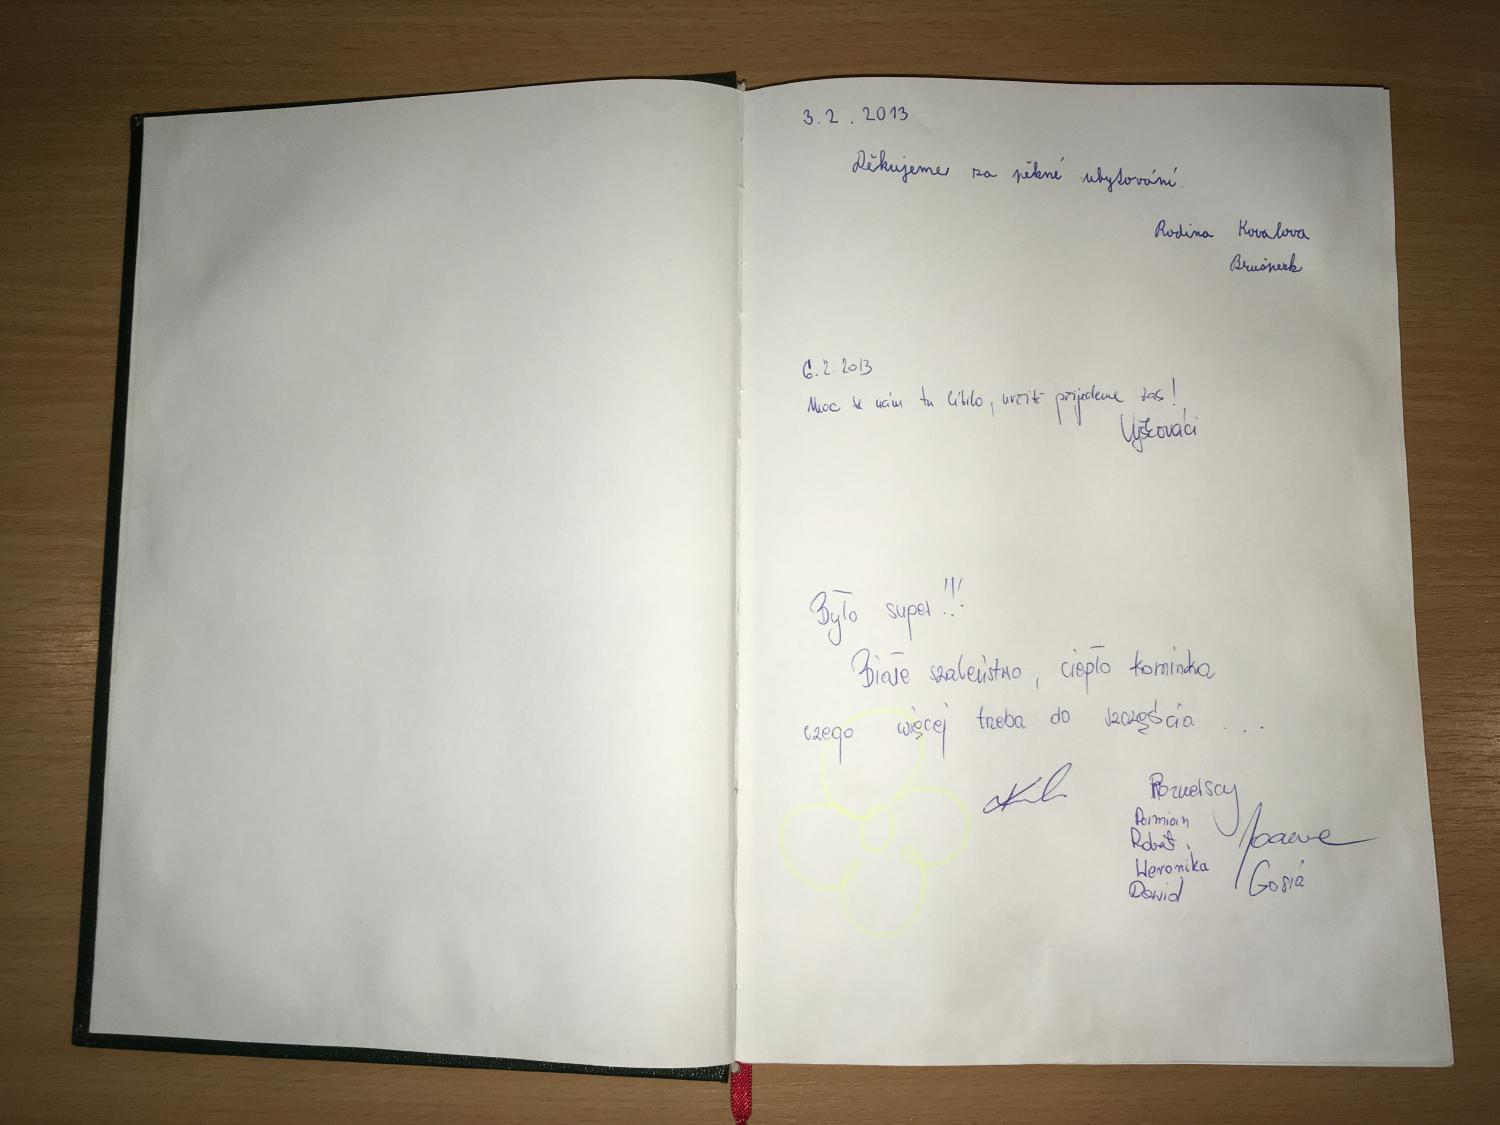 3. 2. 2013
Děkujeme za pěkné ubytování.
Rodina Kovalova
Brušperk
6. 2. 2013
Moc se nám tu líbilo, určitě přijedeme zas!
Vyškováci
Było super!!!
Białe szaleństwo, ciepło kominka
czego więcej trzeba do szczęścia ...
Damian
Robert
Weronika
Gosia
Dawid